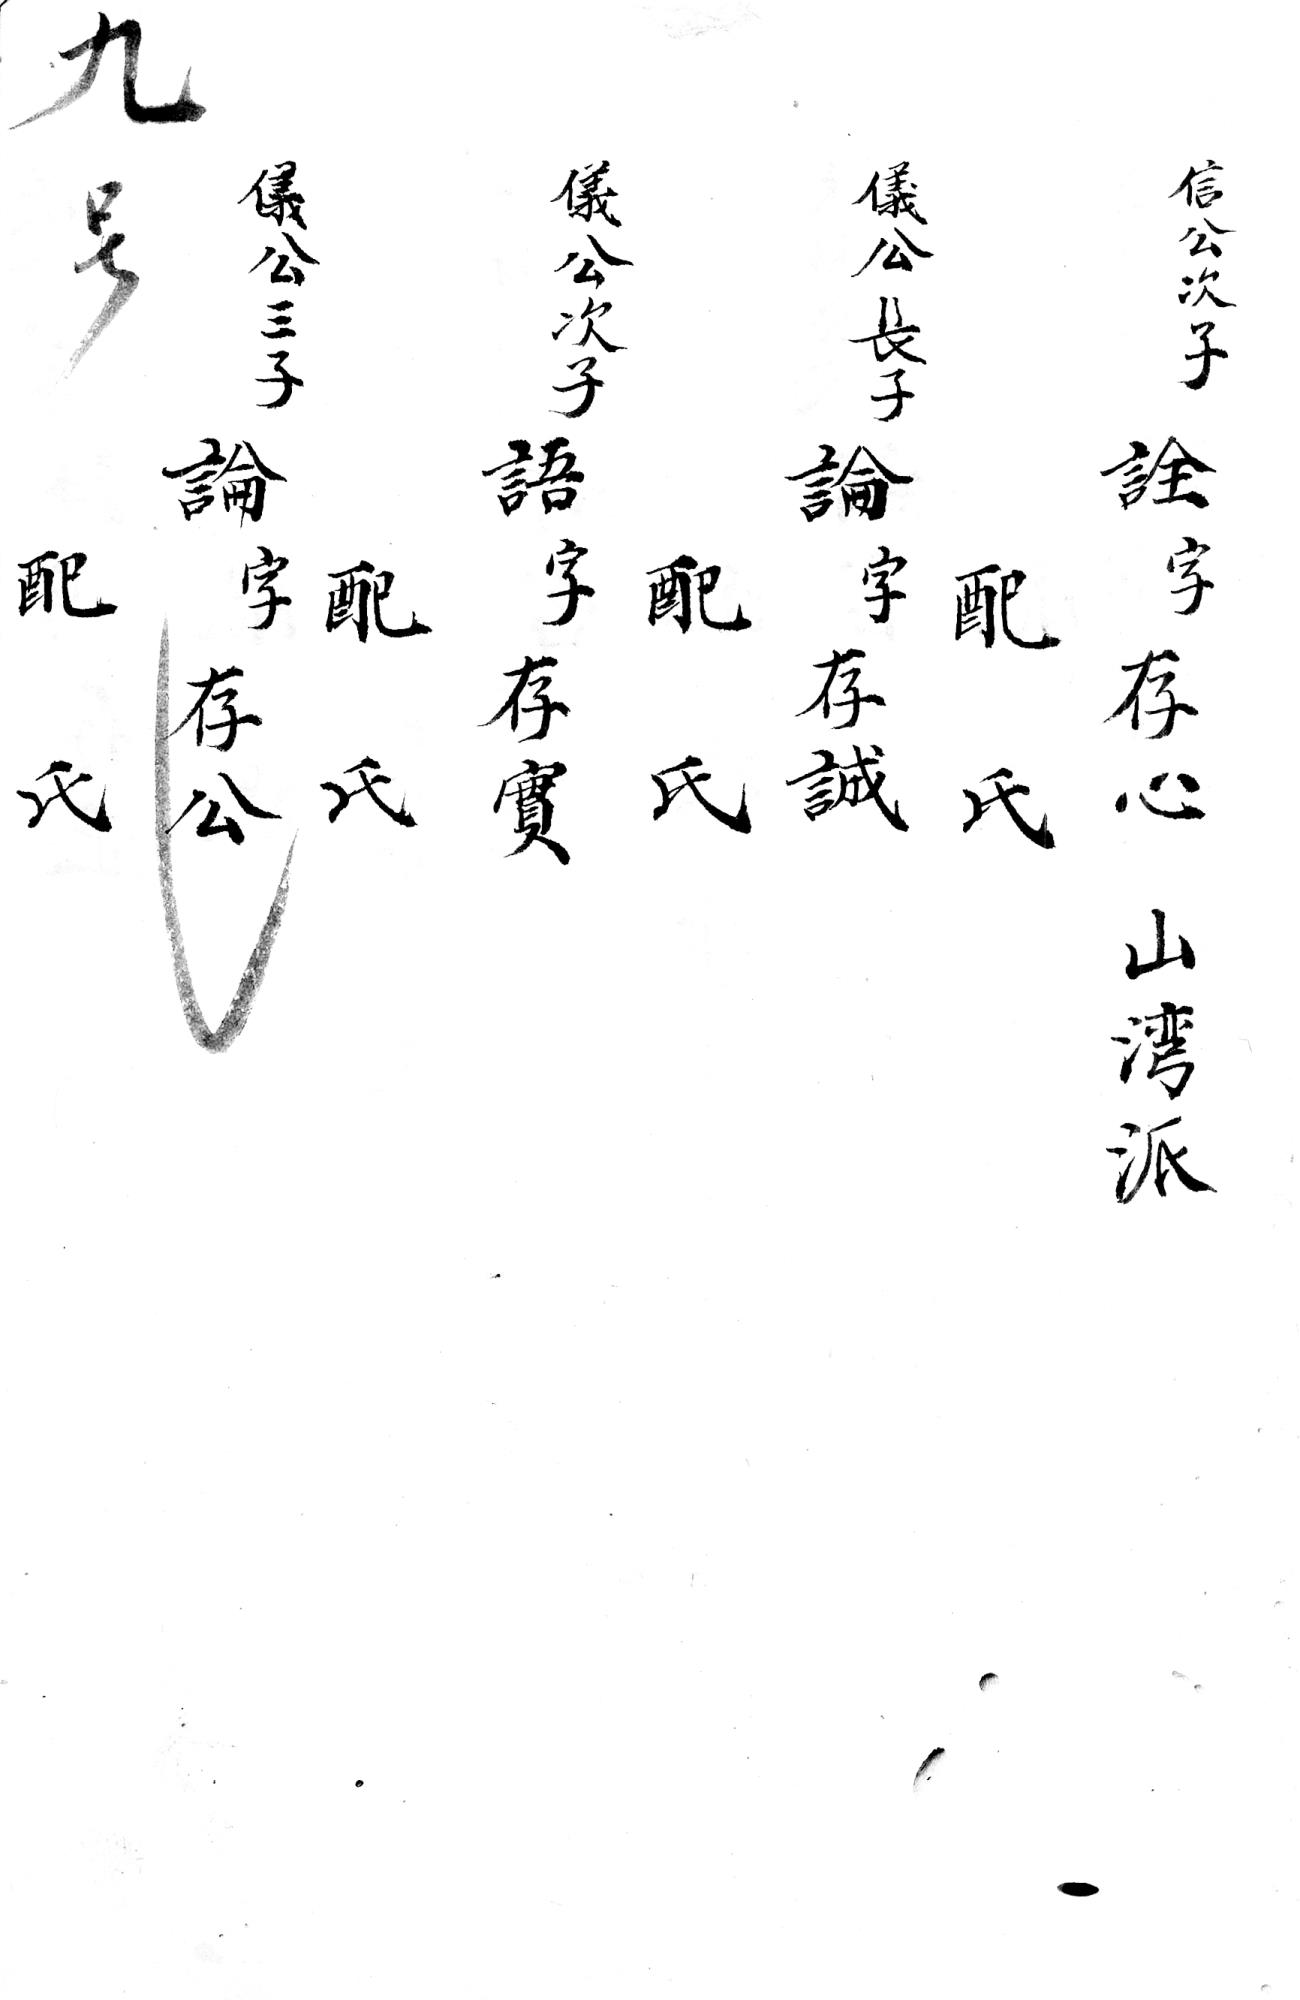 信公次子 詮字存心 山湾派
配 氏
儀公長子 論字存誠
配 氏
儀公次子 語字存實
配 氏
儀公三子 論字存公
配 氏
九号